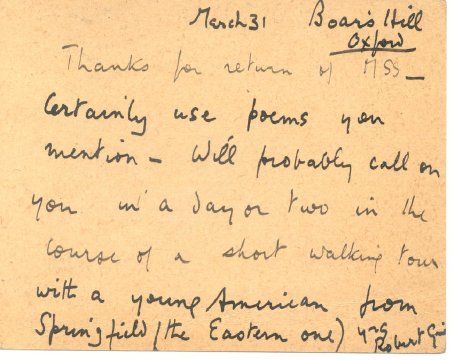 March 31 Boar's Hill
Oxford
Thanks for return of MSS –
Certainly use poems you
mention – Will probably call on
you in a day or two in the
course of a short walking tour
with a young American from
Springfield (the Eastern one) yrs
Robert